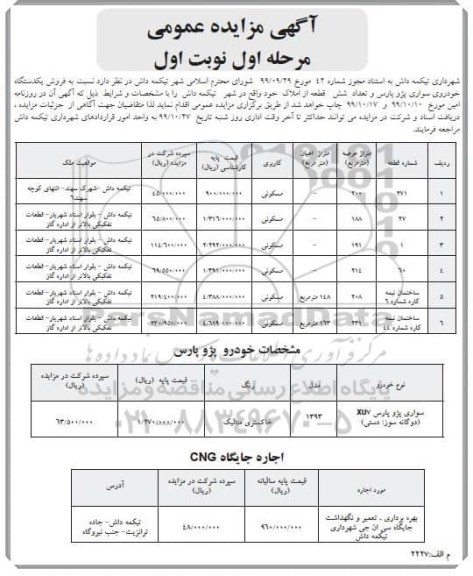 آگهی مزایده عمومی
مرحله اول نوبت اول
شهرداری تیکمه داش به استناد مجوز شماره ۴۲ مورخ ۹۹/۰۹/۲۹ شورای محترم اسلامی شهر تیکمه داش در نظر دارد نسبت به فروش یکدستگاه
خودروی سواری پژو پارس و تعداد شش قطعه از املاک خود واقع در شهر تیکمه داش را با مشخصات و شرایط ذیل که آگهی آن در روزنامه
امین مورخ ۹۹/۱۰/۱۰ و ۹۹/۱۰/۱۷ چاپ خواهد شد از طریق برگزاری مزایده عمومی اقدام نماید لذا متقاضیان جهت آگاهی از جزئیات مزایده ،
دریافت اسناد و شرکت در مزایده می توانند حداکثر تا آخر وقت اداری روز شنبه تاریخ ۹۹/۱۰/۲۷ به واحد امور قراردادهای شهرداری تیکمه داش
مراجعه فرمایند.
ردیف شماره قطعه متراژ عرصه (مترمربع) متراژ اعیان (متر مربع) کاربری قیمت پایه کارشناسی (ریال) سپرده شرکت در مزایده (ریال) موقعیت ملک
۱ ۲۷۱ ۲۰۰ - مسکونی ۹۰۰/۰۰۰/۰۰۰ ۴۵/۰۰۰/۰۰۰ تیکمه داش -شهرک سهند- انتهای کوچه سهند۶
۲ ۲۷ ۱۸۸ - مسکونی ۱/۳۱۶/۰۰۰/۰۰۰ ۶۵/۸۰۰/۰۰۰ تیکمه داش - بلوار استاد شهریار- قطعات تفکیکی بالاتر از اداره گاز
۳ ۱ ۱۹۱ - مسکونی ۲/۲۹۲/۰۰۰/۰۰۰ ۱۱۴/۶۰۰/۰۰۰ تیکمه داش - بلوار استاد شهریار- قطعات تفکیکی بالاتر از اداره گاز
۴ ۶۰ ۲۱۴ - مسکونی ۱/۳۹۱/۰۰۰/۰۰۰ ۶۹/۵۵۰/۰۰۰ تیکمه داش - بلوار استاد شهریار- قطعات تفکیکی بالاتر از اداره گاز
۵ ساختمان نیمه کاره شماره ۶ ۲۰۸ ۱۴۸ مترمربع مسکونی ۴/۳۸۸/۰۰۰/۰۰۰ ۲۱۹/۴۰۰/۰۰۰ تیکمه داش - بلوار استاد شهریار- قطعات تفکیکی بالاتر از اداره گاز
۶ ساختمان نیمه کاره شماره ۴۴ ۲۳۱ ۱۶۳ مترمربع مسکونی تیکمه داش - بلوار استاد شهریار- قطعات تفکیکی بالاتر از اداره گاز
ParsNamadData
مرکز فرآوری اطلاعات پارس نماد داده ها
مشخصات خودرو پژو پارس
پایگاه اطلاع رسانی مناقصه و مزایده
نوع خودرو مدل رنگ قیمت پایه (ریال) سپرده شرکت در مزایده (ریال)
سواری پژو پارس XU7 (دوگانه سوز: دستی) ۱۳۹۳ خاکستری متالیک ۱/۲۷۰/۰۰۰/۰۰۰ ۶۳/۵۰۰/۰۰۰
۰۲۱-۸۸۳۴۹۶۷۰-۵
اجاره جایگاه CNG
مورد اجاره قیمت پایه سالیانه (ریال) سپرده شرکت در مزایده (ریال) آدرس
بهره برداری ، تعمیر و نگهداشت جایگاه سی ان جی شهرداری تیکمه داش ۹۶۰/۰۰۰/۰۰۰ ۴۸/۰۰۰/۰۰۰ تیکمه داش- جاده ترانزیت- جنب نیروگاه
م الف:۲۲۲۷